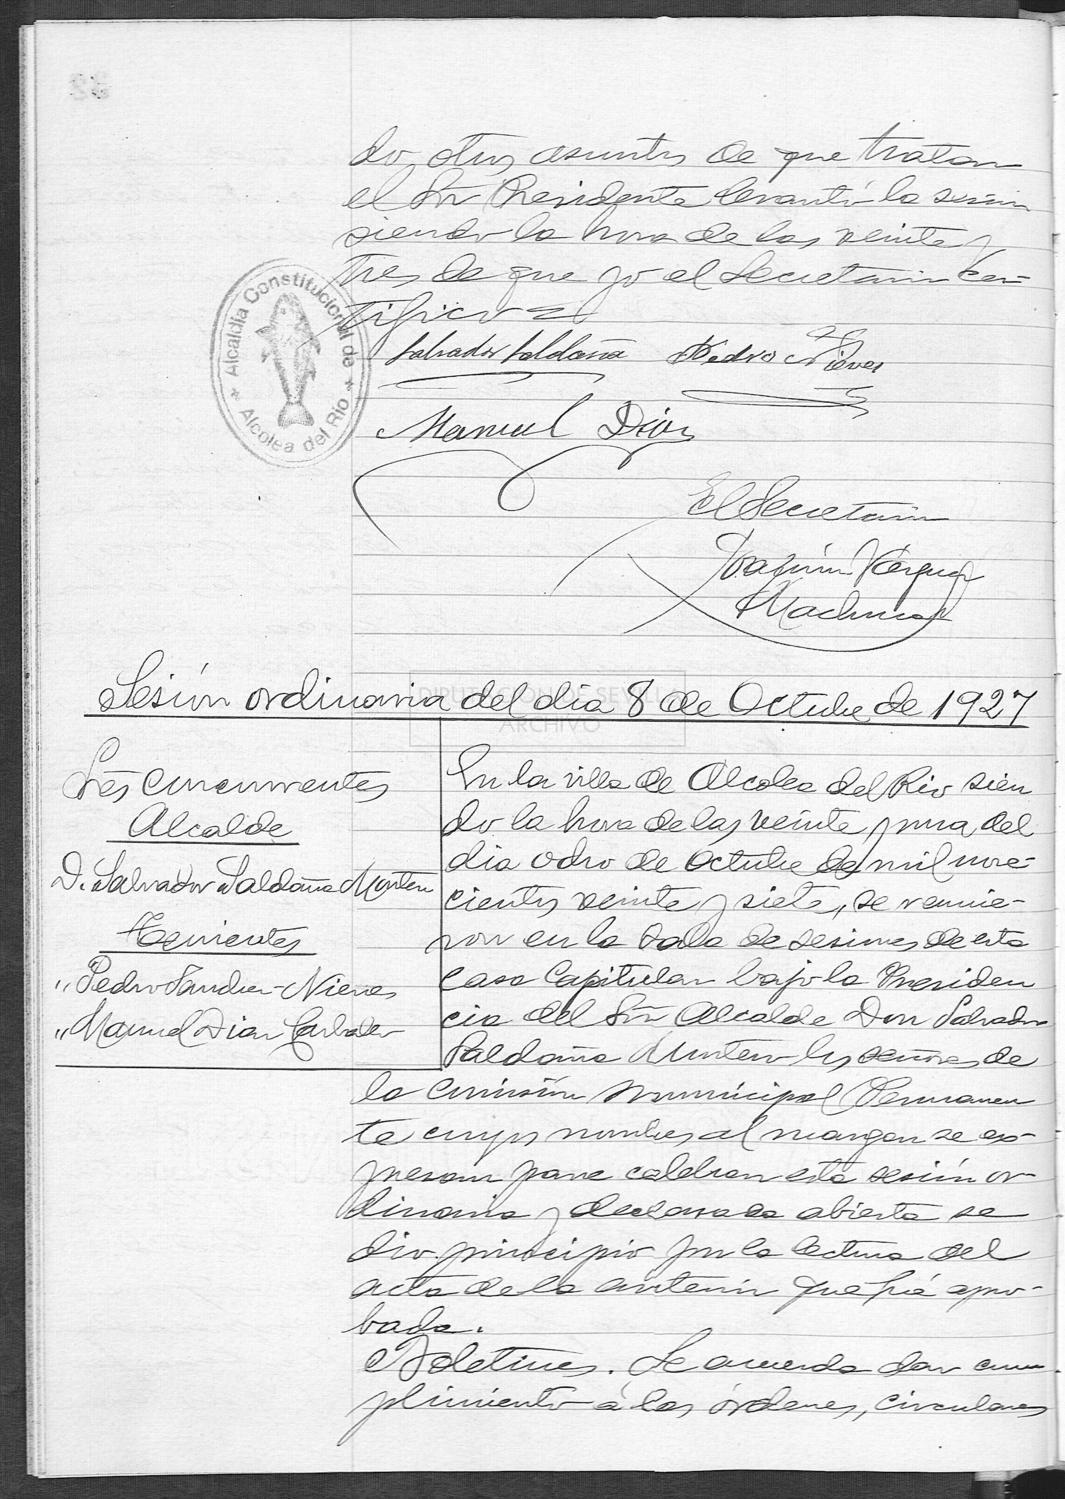 do otros asuntos de que tratar
el Sr Presidente levantó la sesión
siendo la hora de las veinte y
tres de que yo el Secretario cer-
tifico =
Alcaldía Constitucional de
* Alcolea del Río *
Salvador Saldaña Pedro S Nieves
Manuel Díaz
El Secretario
Joaquín Vázquez
Machuca
Sesión ordinaria del día 8 de Octubre de 1927
DIPUTACION DE SEVILLA
ARCHIVO
Sres concurrentes
Alcalde
D. Salvador Saldaña Montero
Tenientes
" Pedro Sanchez Nieves
" Manuel Diaz
En la villa de Alcolea del Rio sien
do la hora de las veinte y una del
dia ocho de Octubre de mil nove-
cientos veinte y siete, se reunie-
ron en la Sala de sesiones de esta
Casa Capitular bajo la Presiden
cia del Sr Alcalde Don Salvador
Saldaña Montero los señores de
la Comisión Municipal Permanen
te cuyos nombres al margen se ex-
presan para celebrar esta sesión or-
dinaria y declarada abierta se
dio principio por la lectura del
acta de la anterior que fué apro-
bada.
Boletines. Se acuerda dar cum-
plimiento á las órdenes, circulares